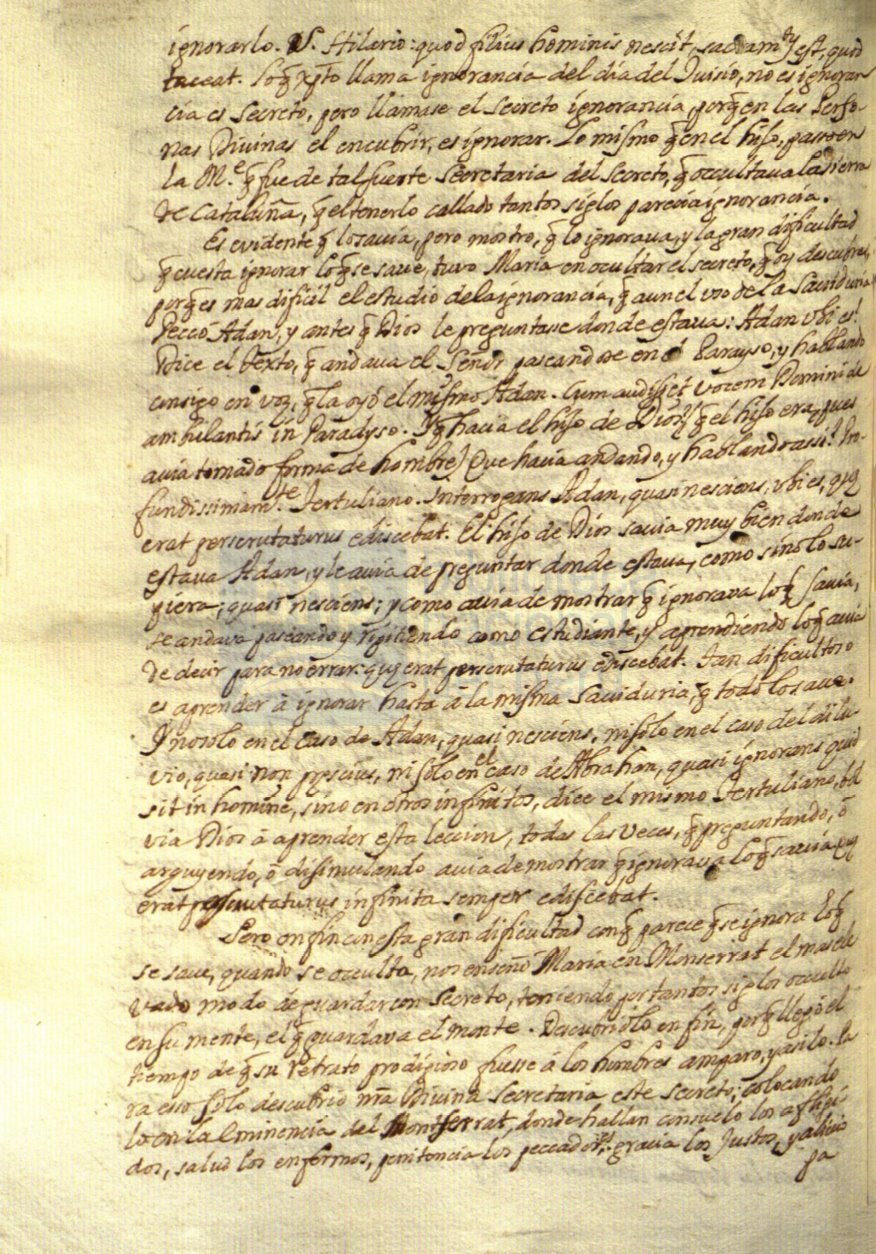 ignorarlo. S. Hilario: quod filius hominis nescit, sacram.ty est, quod
taceat. Lo q̃ xp̃to llama ignorancia del dia del Juisio, no es ignoran
cia es secreto, pero llamase el secreto ignorancia, porq̃ en las Perso-
nas Divinas el encubrir, es ignorar. Lo mismo q̃ en el hijo, passo en
la M.e q̃ fue de tal suerte Secretaria del secreto, q̃ occultava la sierra
de Cataluña, q̃ el tenerlo callado tantos siglos parecia ignorancia.
Es evidente q̃ lo savia, pero mostro, q̃ lo ignorava, y la gran dificultad
q̃ cuesta ignorar lo q̃ se save, tuvo Maria en ocultar el secreto, q̃ oy descubre,
porq̃ es mas dificil el estudio de la ignorancia, q̃ aun el uso de la Saviduria
Peccó Adan, y antes q̃ Dios le preguntasse donde estava: Adan ubi es?
Dice el Texto, q̃ andava el Señor paseandose en el Parayso, y hablando
consigo en voz, q̃ la oyó el mismo Adan. Cum audisset vocem Domini de
ambulantis in Paradyso. Y q̃ hacia el hijo de Dios (q̃ el hijo era, pues
avia tomado forma de hombre) Que hacia andando, y hablando assi? Pro-
fundissimam.te Tertuliano. Interrogans Adan, quasi nesciens, ubi es, quq
erat perscrutaturus ediscebat. El hijo de Dios savia muy bien donde
estava Adan, y le avia de preguntar donde estava, como si no lo su-
piera; quasi nesciens; y como avia de mostrar q̃ ignorava lo q̃ savia,
se andava paseando y repitiendo como estudiante, y aprendiendo lo q̃ avia
de decir para no errar: quq erat perscrutaturus ediscebat. Tan dificultoso
es aprender à ignorar hasta à la misma Saviduria, q̃ todo lo save.
Y no solo en el caso de Adan, quasi nesciens, ni solo en el caso del dilu
vio, quasi non prescius, ni solo en el caso de Abrahan, quasi ignorans quid
sit in homine, sino en otros infinitos, dice el mismo Tertuliano, bol
via Dios à aprender esta leccion, todas las veces, q̃ preguntando, ò
arguyendo, ò disimulando avia de mostrar q̃ ignorava lo q̃ savia quq
erat perscrutaturus infinita semper ediscebat.
Pero en fin con esta gran dificultad con q̃ parece q̃ se ignora lo q̃
se save, quando se occulta, nos enseñó Maria en Monserrat el mas ele
vado modo de guardar con secreto, teniendo por tantos siglos occulto
en su mente, el q̃ guardava el monte. Descubriólo en fin, porq̃ llegó el
tiempo de q̃ su retrato prodigioso fuesse à los hombres amparo, y asilo. Pa
ra esso solo descubrio nr̃a Divina Secretaria este secreto; colocando
lo en la Eminencia del Montserrat, donde hallan consuelo los afligi-
dos, salud los enfermos, penitencia los peccadores, gracia los Justos, y alivio
pa